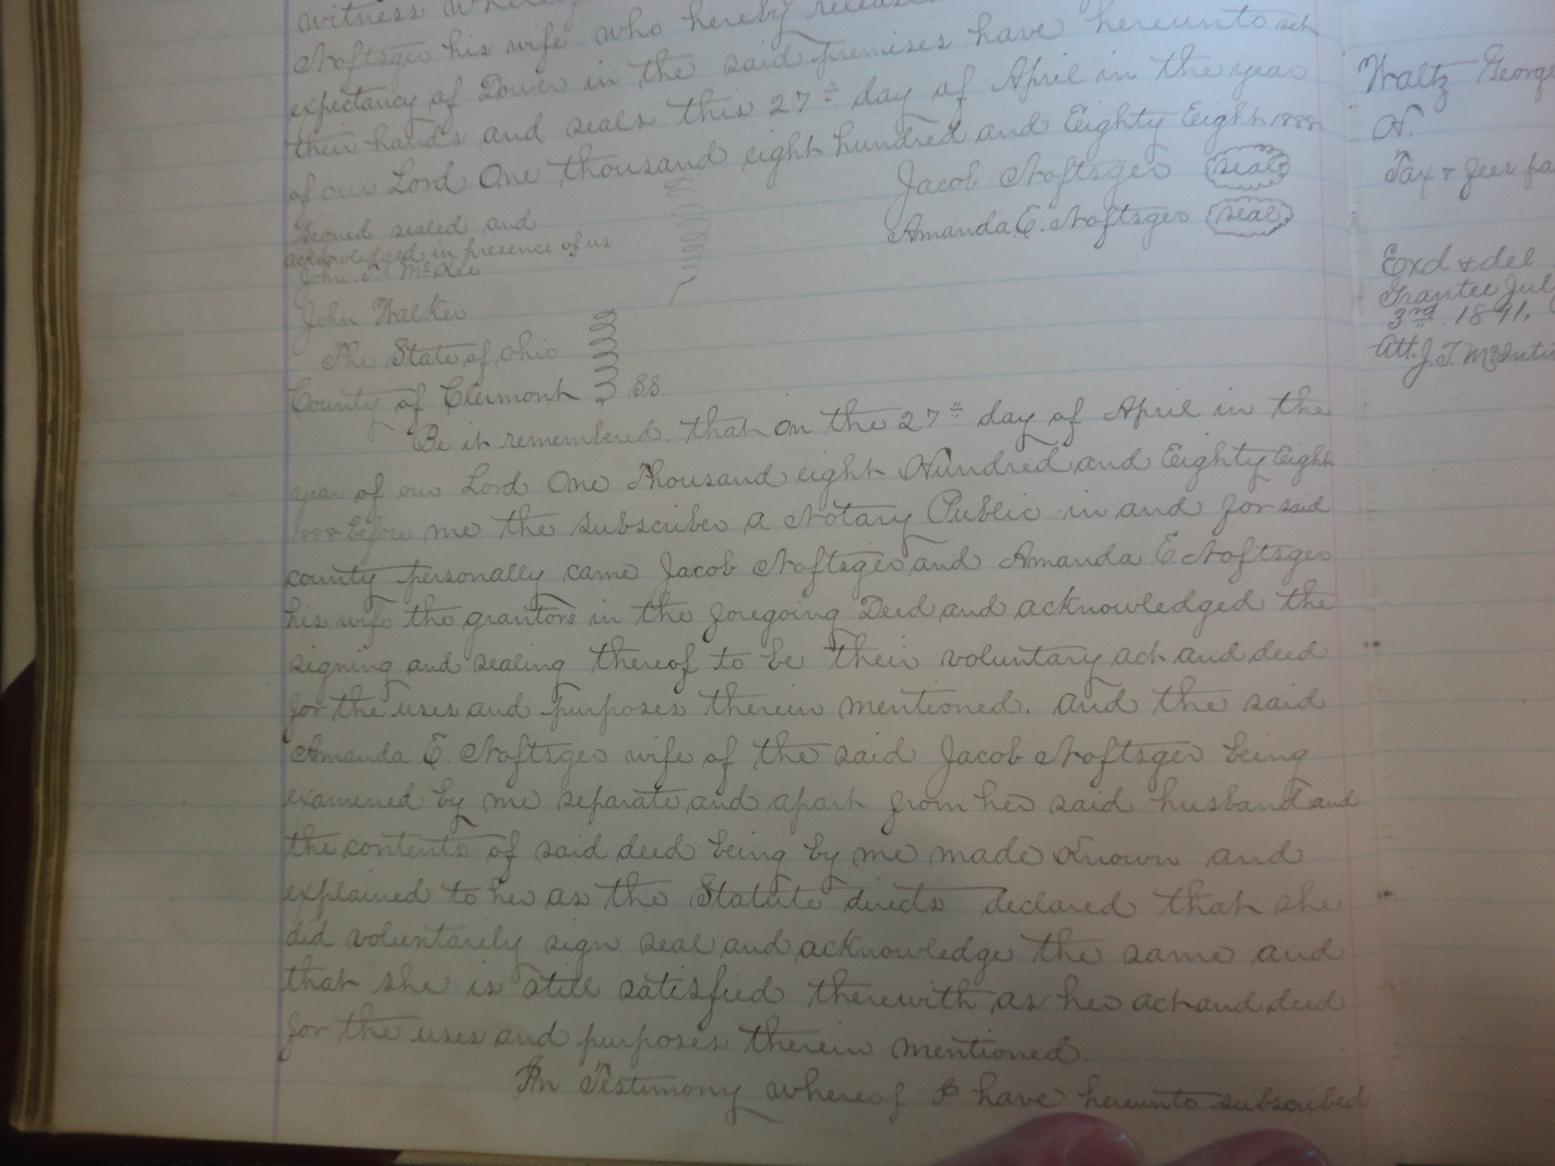 witness
Noftsger his wife who hereby
expectancy of Dower in the said premises have hereunto set
their hands and seals this 27th day of April in the year
of our Lord One thousand eight hundred and Eighty Eight 1888
Jacob Noftsger (seal)
Amanda E. Noftsger (seal)
Signed sealed and
acknowledged in presence of us
John
John Walker
The State of Ohio
County of Clermont } SS
Be it remembered. that on the 27th day of April in the
year of our Lord One Thousand eight Hundred and Eighty Eight
1888 before me the subscriber a Notary Public in and for said
county personally came Jacob Noftsger and Amanda E. Noftsger
his wife the grantors in the foregoing Deed and acknowledged the
signing and sealing thereof to be their voluntary act and deed
for the uses and purposes therein mentioned. and the said
Amanda E. Noftsger wife of the said Jacob Noftsger being
examined by me separate and apart from her said husband and
the contents of said deed being by me made Known and
explained to her as the Statute directs declared that she
did voluntarily sign seal and acknowledge the same and
that she is still satisfied therewith as her act and deed
for the uses and purposes therein mentioned.
In Testimony whereof I have hereunto subscribed
Waltz George
Of.
Tax & fees
Exd & del
Grantee
3rd. 1891.
Att. J. T.